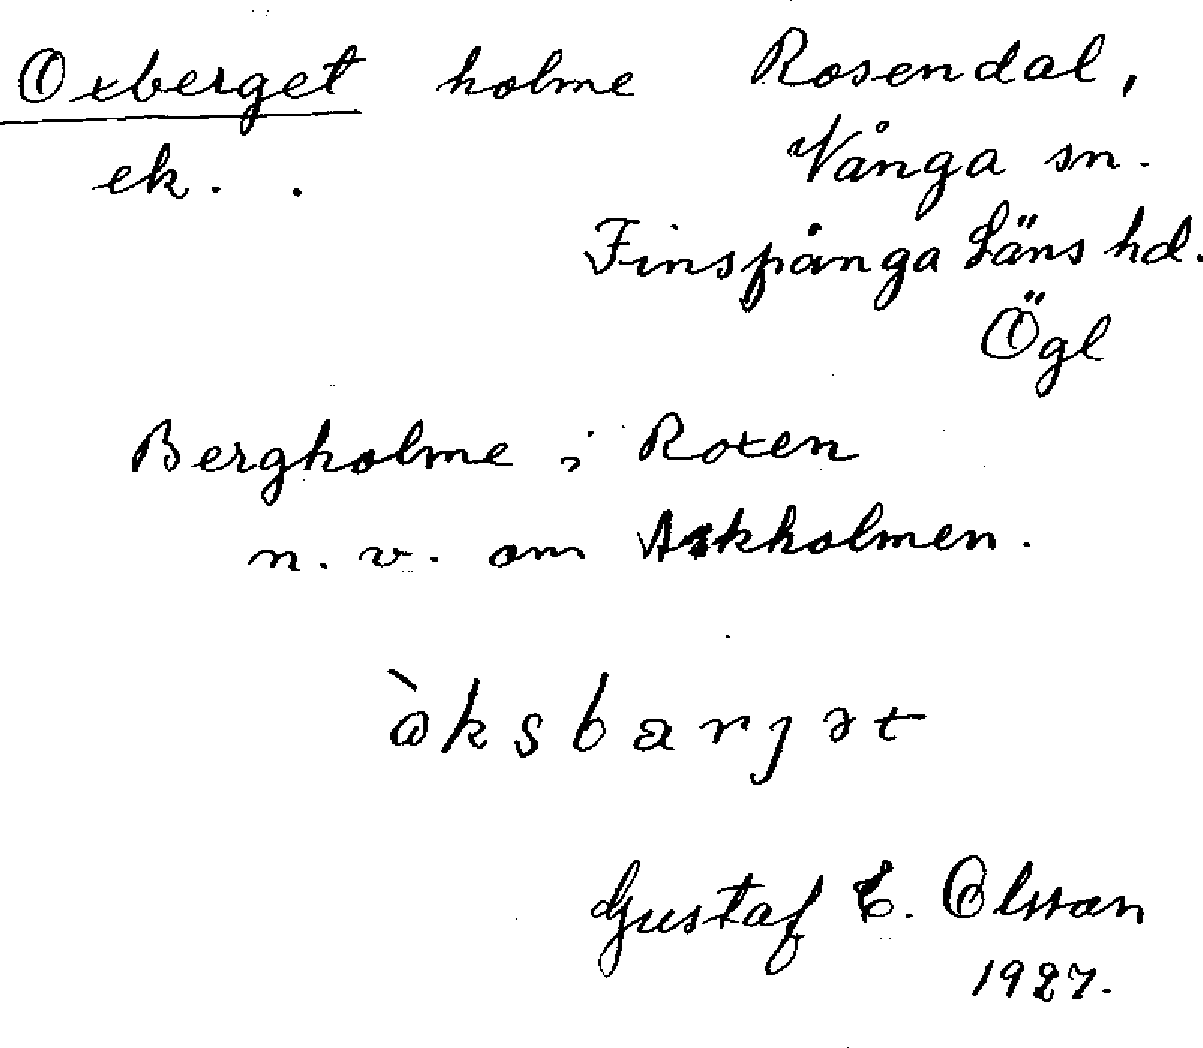 Oxberget holme Rosendal,
ek. . Vånga sn.
Finspånga Läns hd.
Ögl
Bergholme i Roxen
n. v. om Askholmen.
òksbarjət
Gustaf E. Olsson
1927.